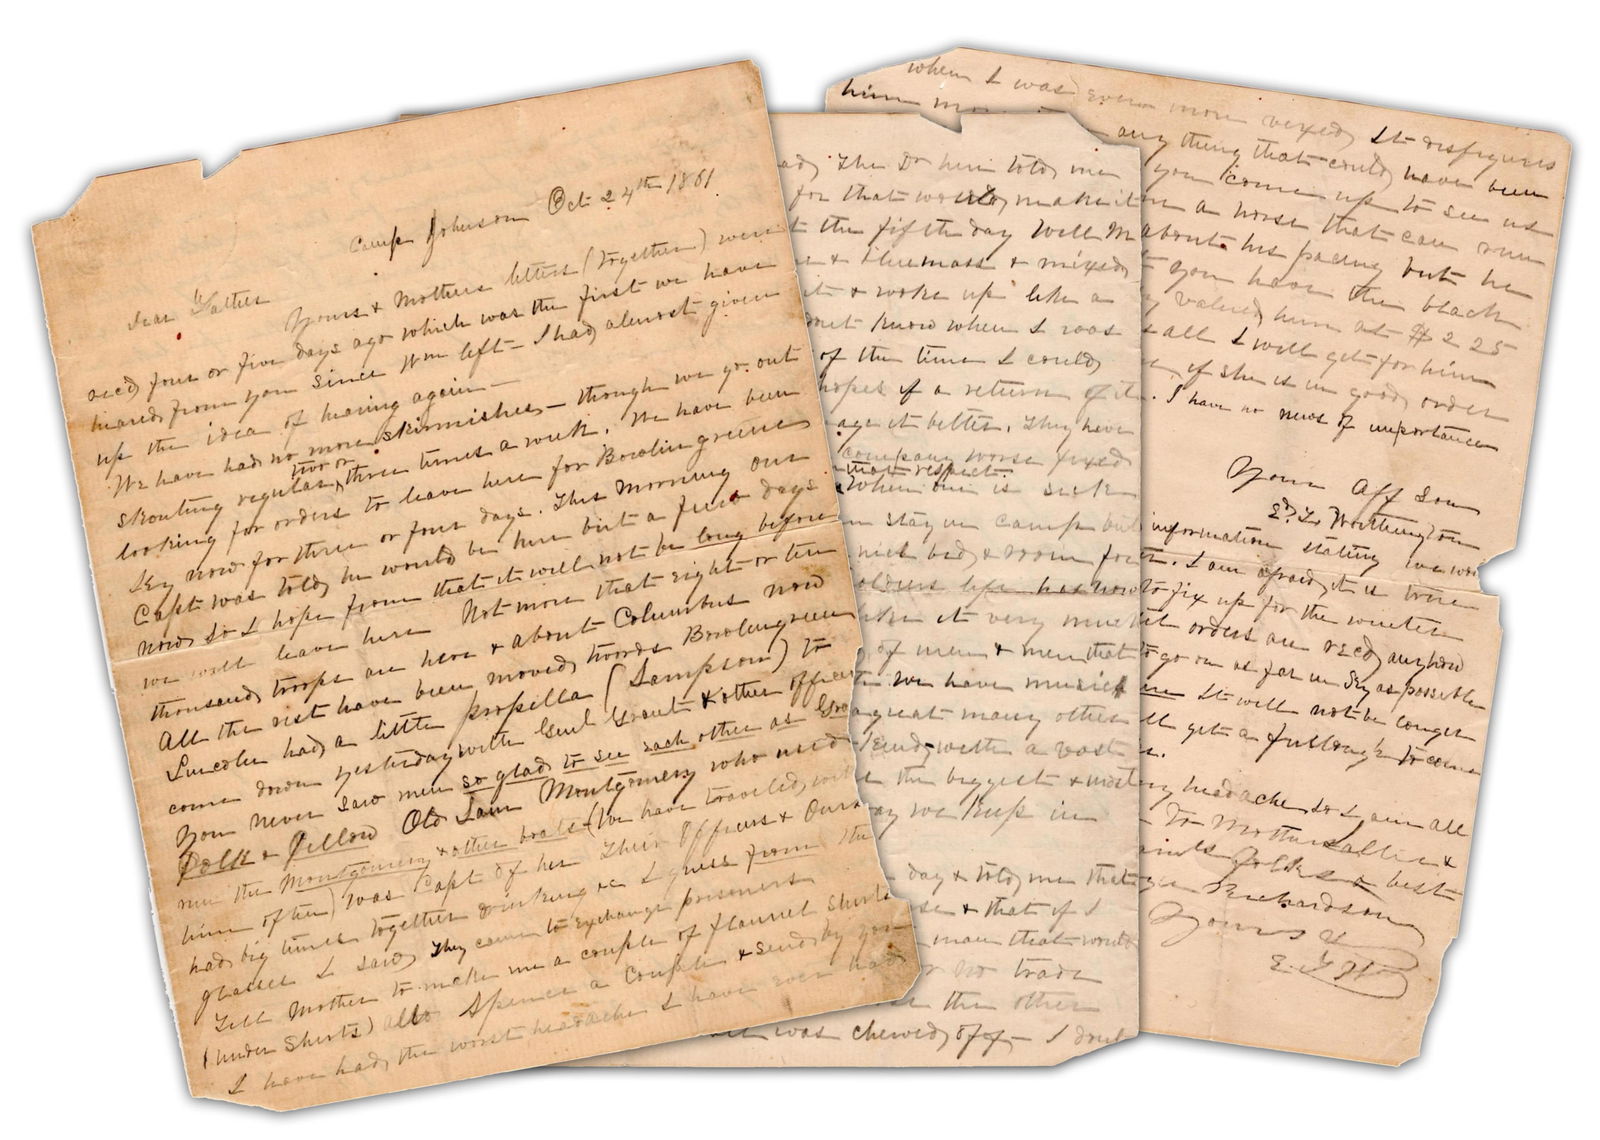 Camp Johnson Oct 24th 1861
Dear Father
Yours & Mothers letters (together) were
recd four or five days ago which was the first we have
heard from you since Wm left – I had almost given
up the idea of hearing again –
We have had no more skirmishes – though we go out
skouting regular two or three times a week. We have been
looking for orders to leave here for Bowlingreene
Ky now for three or four days. This Morning our
Capt was told he would be here but a few days
now so I hope from that it will not be long before
we will leave here Not more that eight or ten
thousand troops are here & about Columbus now
All the rest have been moved towards Bowlingreene
Lincoln had a little propella (Sampson) to
come down yesterday with Genl Grant & other officers
You never saw men so glad to see each other as
Polk & Pillow Old Sam Montgomery who used
run the Montgomery & other boats (We have traveled with
him often) was Capt of her Their Officers & Ours
had big times together drinking &c I guess from the
glasses I saw They came to exchange prisoners
Tell Mother to make me a couple of flannel shirts
(under shirts) also Spence a Couple & send by you
I have had the worst headache I have ever had
The Dr here told me
for that would make it
the fifth day Will M
& bluemass & mixed
it & woke up like a
dont know when I was
of the time I could
hopes if a return of it
age it better. They have
company worse fixed
that respect.
When one is sick
stay in camp but
nice bed & room for
soldiers life has now
like it very much
of men & men that
we have musick
a great many other
kind with a vast
the biggest & most
day we keep in
day & told me that
& that if I
man that would
or no trade
than the other
was chewed off – I dont
when I was even more vexed It disfigures
him more
any thing that could have been
you come up to see us
a horse that can run
about his pacing but he
you have the black
valued him at $225
all I will get for him
if she is in good order
. I have no news of importance
Your Aff Son
Ed. L. Worthington
information stating we wo
. I am afraid it is true
to fix up for the winter
orders are recd anyhow
to go on as far in Ky as possible
It will not be longer
get a fullough to come
headache so I am all
To Mother Sallie &
Folks & best
Richardson
Yours &
E. L. W